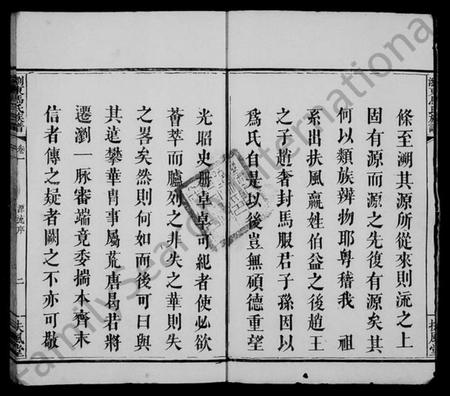 條至溯其源所從來則流之上
固有源而源之先復有源矣其
何以類族辨物耶粵稽我 祖
系出扶風嬴姓伯益之後趙王
之子趙奢封馬服君子孫因以
爲氏自是以後豈無碩德重望
光昭史册卓卓可紀者使必欲
薈萃而臚列之非失之華則失
之畧矣然則何如而後可曰與
其遠攀華胄事屬荒唐曷若將
遷瀏一脉審端竟委揣本齊末
信者傳之疑者闕之不亦可歟
瀏東馬氏族譜
卷一
源流序
二
扶風堂
FamilySearch International